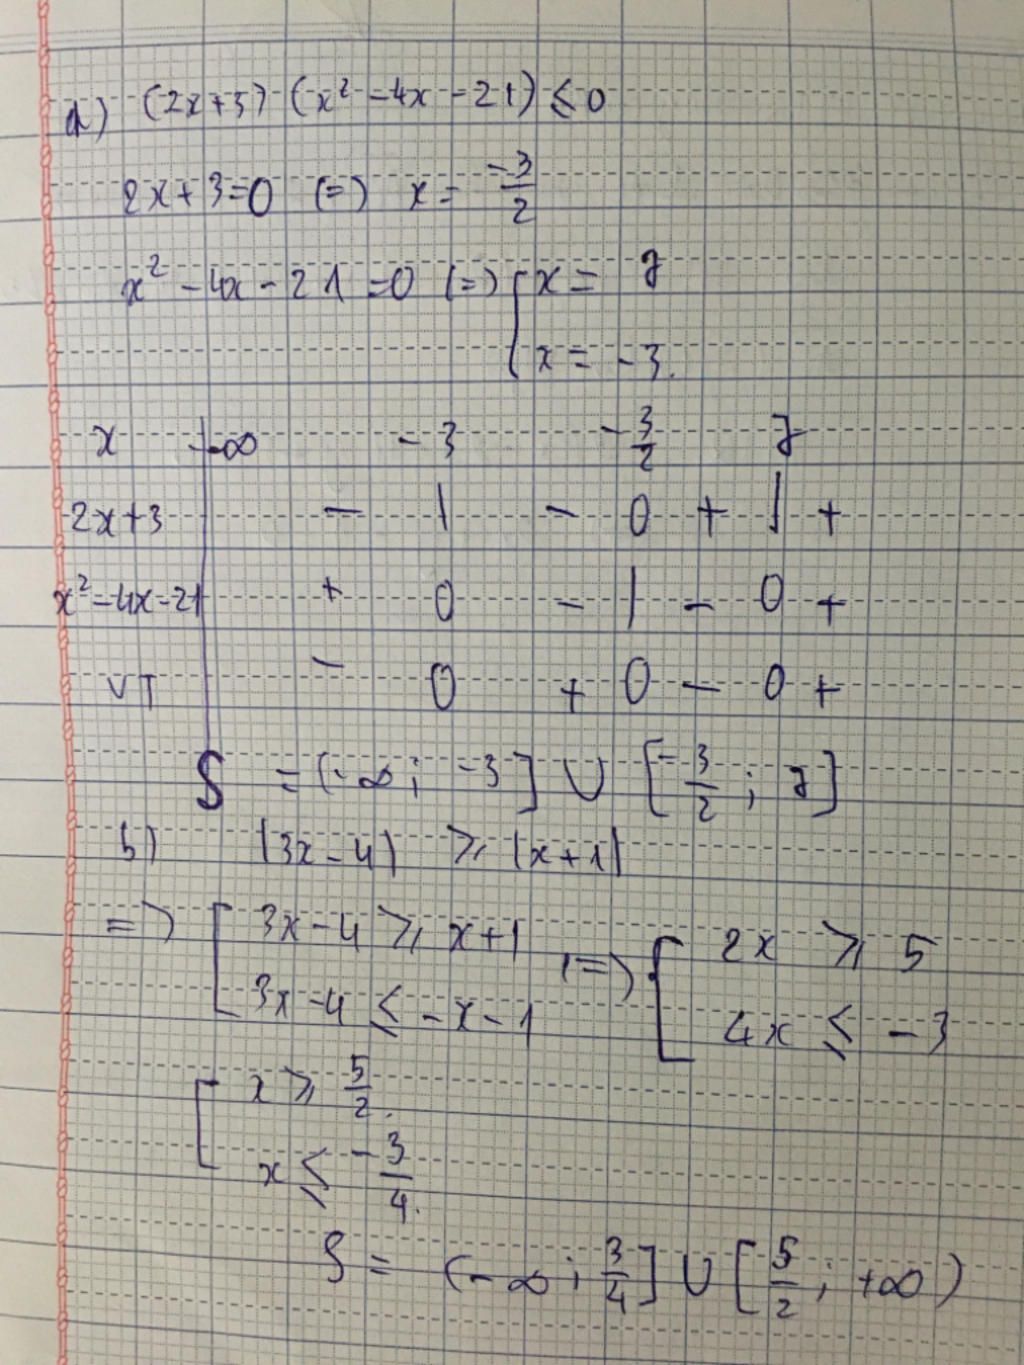 a) (2x+3) (x² - 4x - 21) ≤ 0
2x + 3 = 0 (=) x = -3/2
x² - 4x - 21 = 0 (=) [ x = 7
x = -3.
x -∞ -3 -3/2 7
2x+3 - | - 0 + | +
x²-4x-21 + 0 - | - 0 +
VT - 0 + 0 - 0 +
S = (-∞; -3] ∪ [-3/2; 7]
b) |3x-4| ≥ |x+1|
=) [ 3x-4 ≥ x+1 (=) [ 2x ≥ 5
3x-4 ≤ -x-1 4x ≤ -3
[ x ≥ 5/2.
x ≤ -3/4.
S = (-∞; 3/4] ∪ [5/2; +∞)